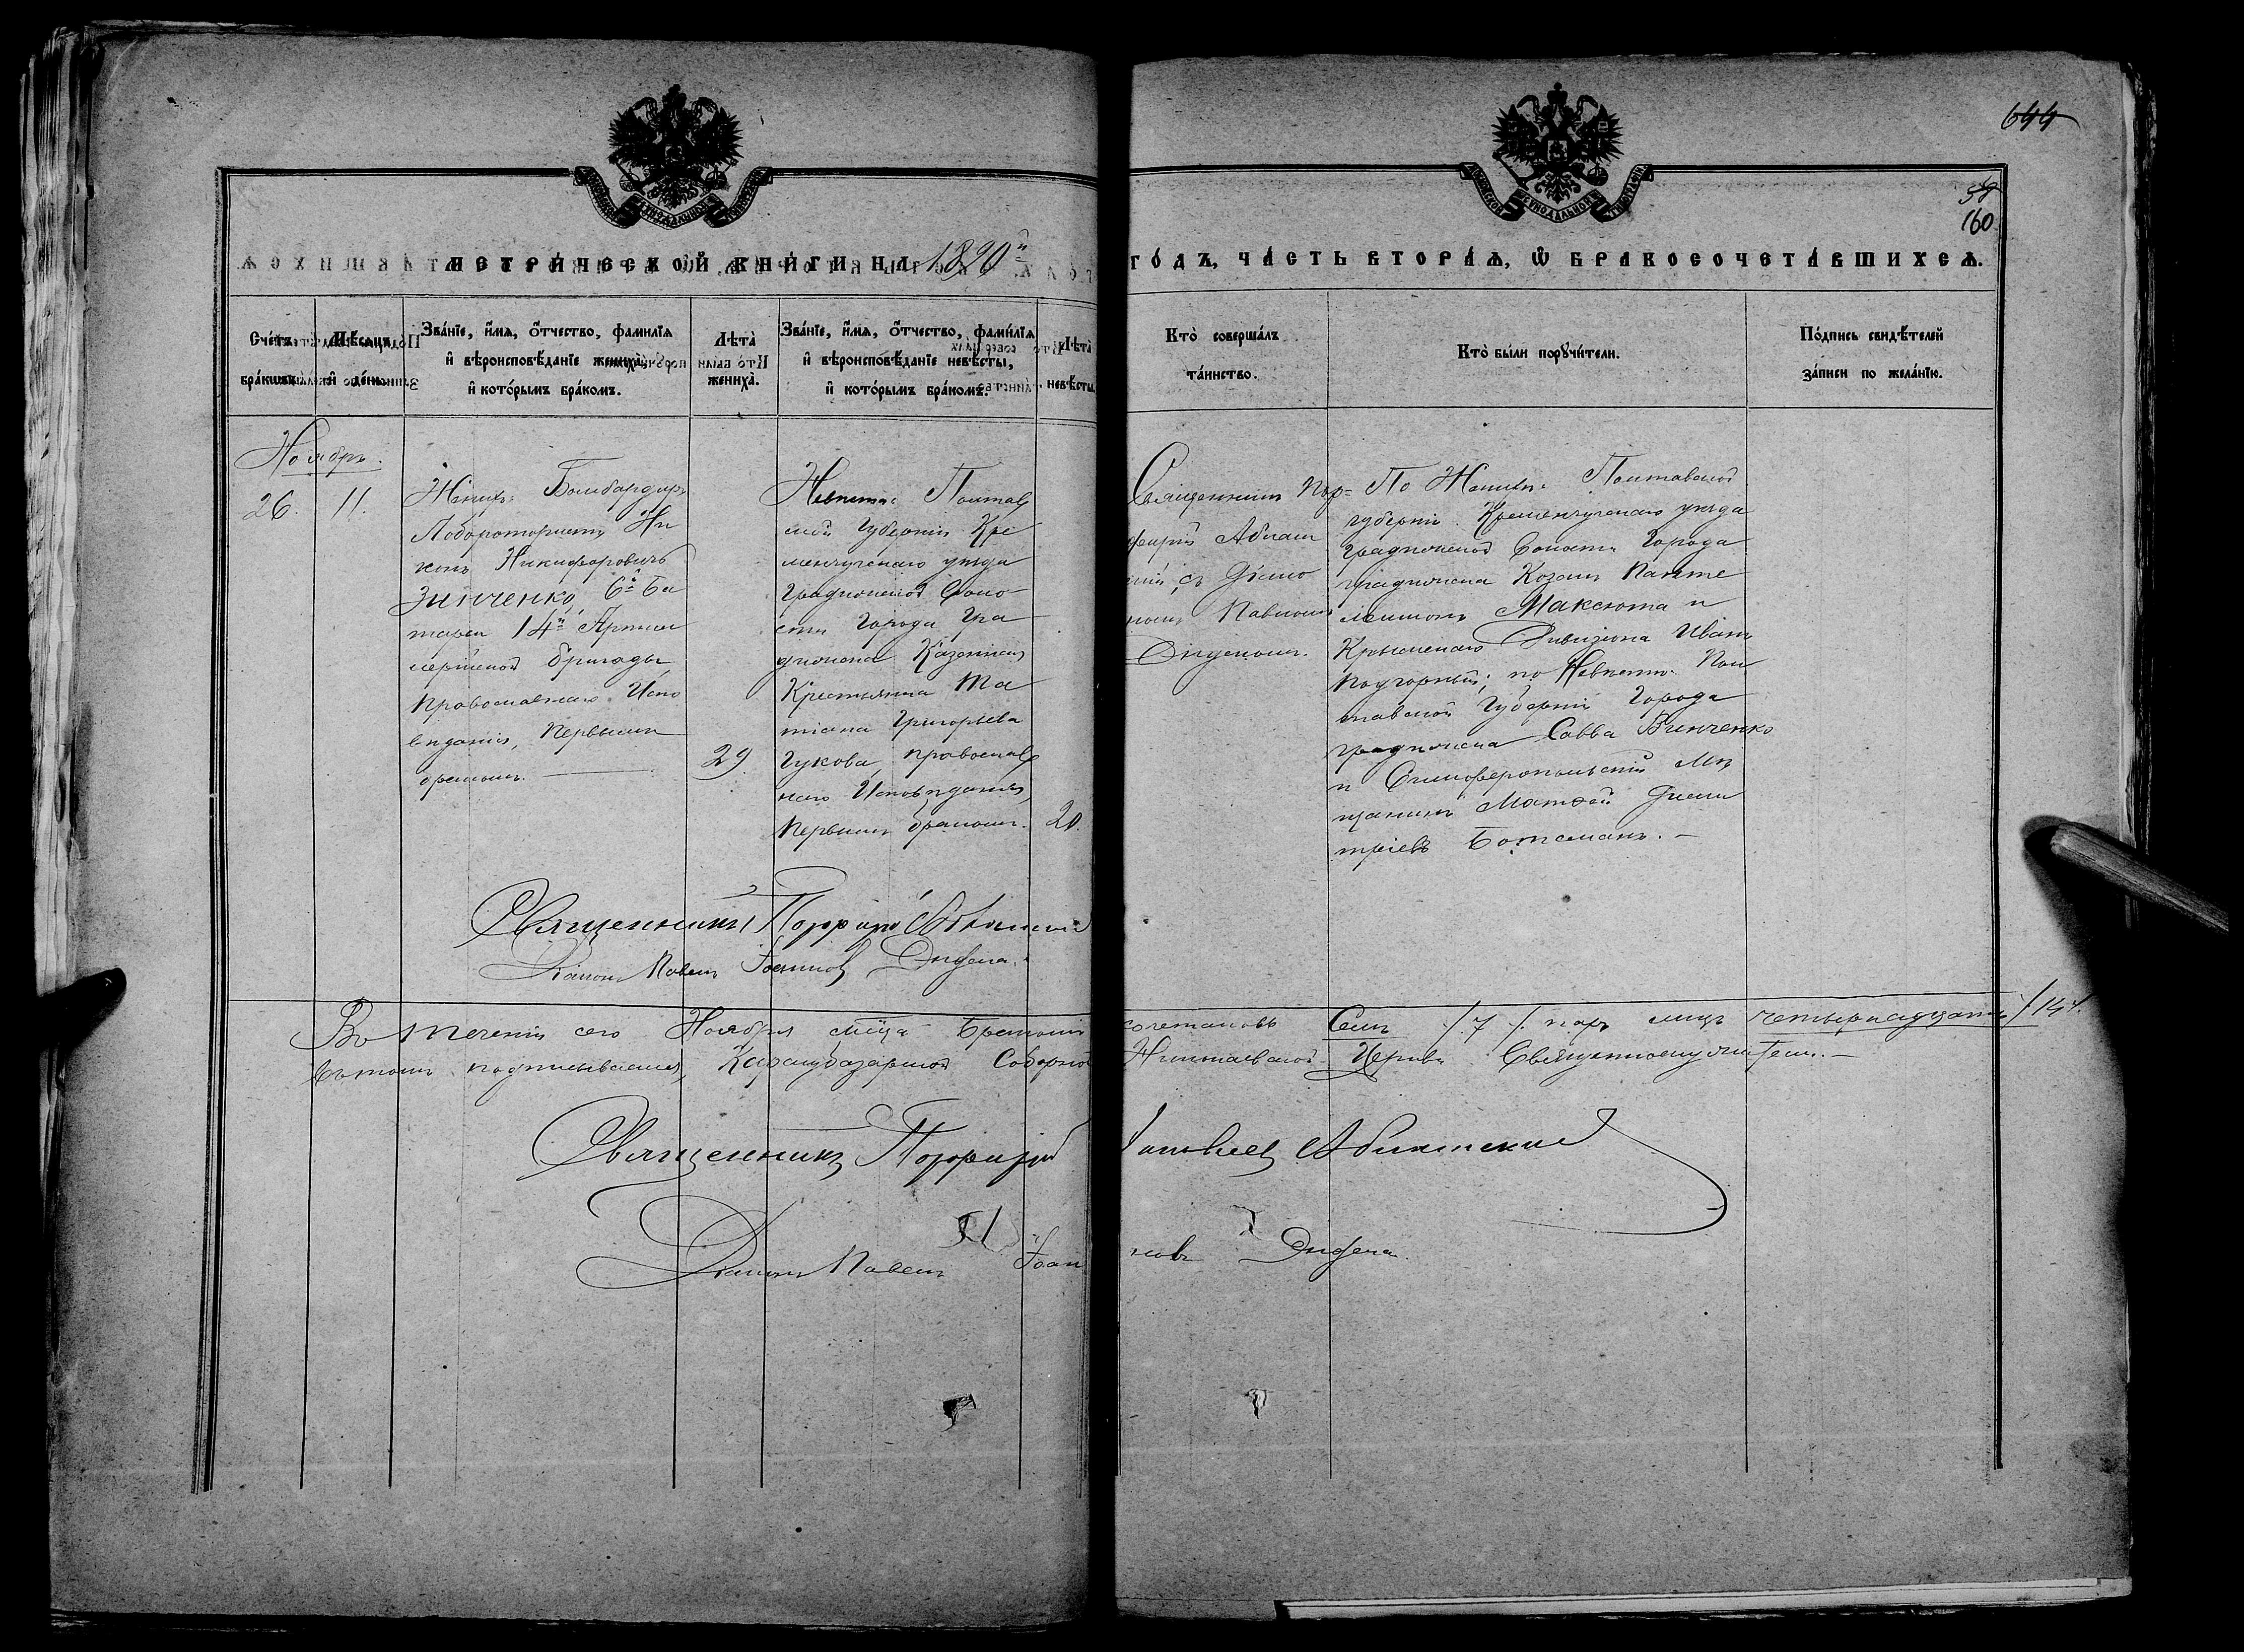 644
58
160
МЕТРИ́ЧЕСКОЙ КНИ́ГИ НА 1890й
ГО́ДЪ, ЧА́СТЬ ВТОРА́Я, Ѿ БРАКОСОЧЕТА́ВШИХСЯ.
Сче́тъ бра́кѡвъ.
Мѣ́сяцъ и де́нь.
Зва́нїе, и́мя, о́тчество, фами́лїя
и вѣроисповѣ́данїе жениха̀,
и кото́рымъ бра́комъ.
Лѣ́та
жениха̀.
Зва́нїе, и́мя, о́тчество, фами́лїя
и вѣроисповѣ́данїе невѣ́сты,
и кото́рымъ бра́комъ.
Лѣ́та
невѣ́сты.
Кто̀ соверша́лъ
та́инство.
Кто̀ бы́ли порꙋчи́тели.
По́дпись свидѣ́телей
за́писи по жела́нїю.
Ноябрь.
26.
11.
Женихъ: Бомбардиръ
Лабораториетъ Ни
конъ Никифоровичъ
Зинченко, 6й Ба
тареи 14й Артил
лерійской бригады
православнаго Испо
вѣданія, первымъ
бракомъ.
29.
Невѣста: Полтав
ской Губерніи Кре
менчугскаго уѣзда
Градижской Воло-
сти Города Гра
дижска Казенная
Крестьянка Та
тіана Григорьева
Гукова, православ
наго Исповѣданія,
первымъ бракомъ.
20.
Священникъ Пор=
фирій Абламс
кій, съ Діако
номъ Павломъ
Диденком.
По Женихѣ: Полтавской
губерніи Кременчугскаго уѣзда
Градижской Волости Города
градижска Козакъ Панте
леимонъ Максюта и
Крымскаго Дивизіона Иванъ
Подгорный; по Невѣстѣ: Пол
тавской Губерніи Города
градижска Савва Винченко
и Симферопольскій Мѣ
щанинъ Матѳей Дими
тріевъ Боцманъ. —
Священникъ Порфирій Абламскій
Діаконъ Павелъ Іоанновъ Диденко.
Въ теченіи сего Ноября мѣсяца бракомъ сочетановъ Семь /.7./ паръ лицъ четырнадцать /.14./.
Въ томъ подписываемся, Карасубазарской Соборной Николаевской Церкви Священнослужители. —
Священникъ Порфирій Яковлев Абламскій
Діаконъ Павелъ Іоанновъ Диденко.